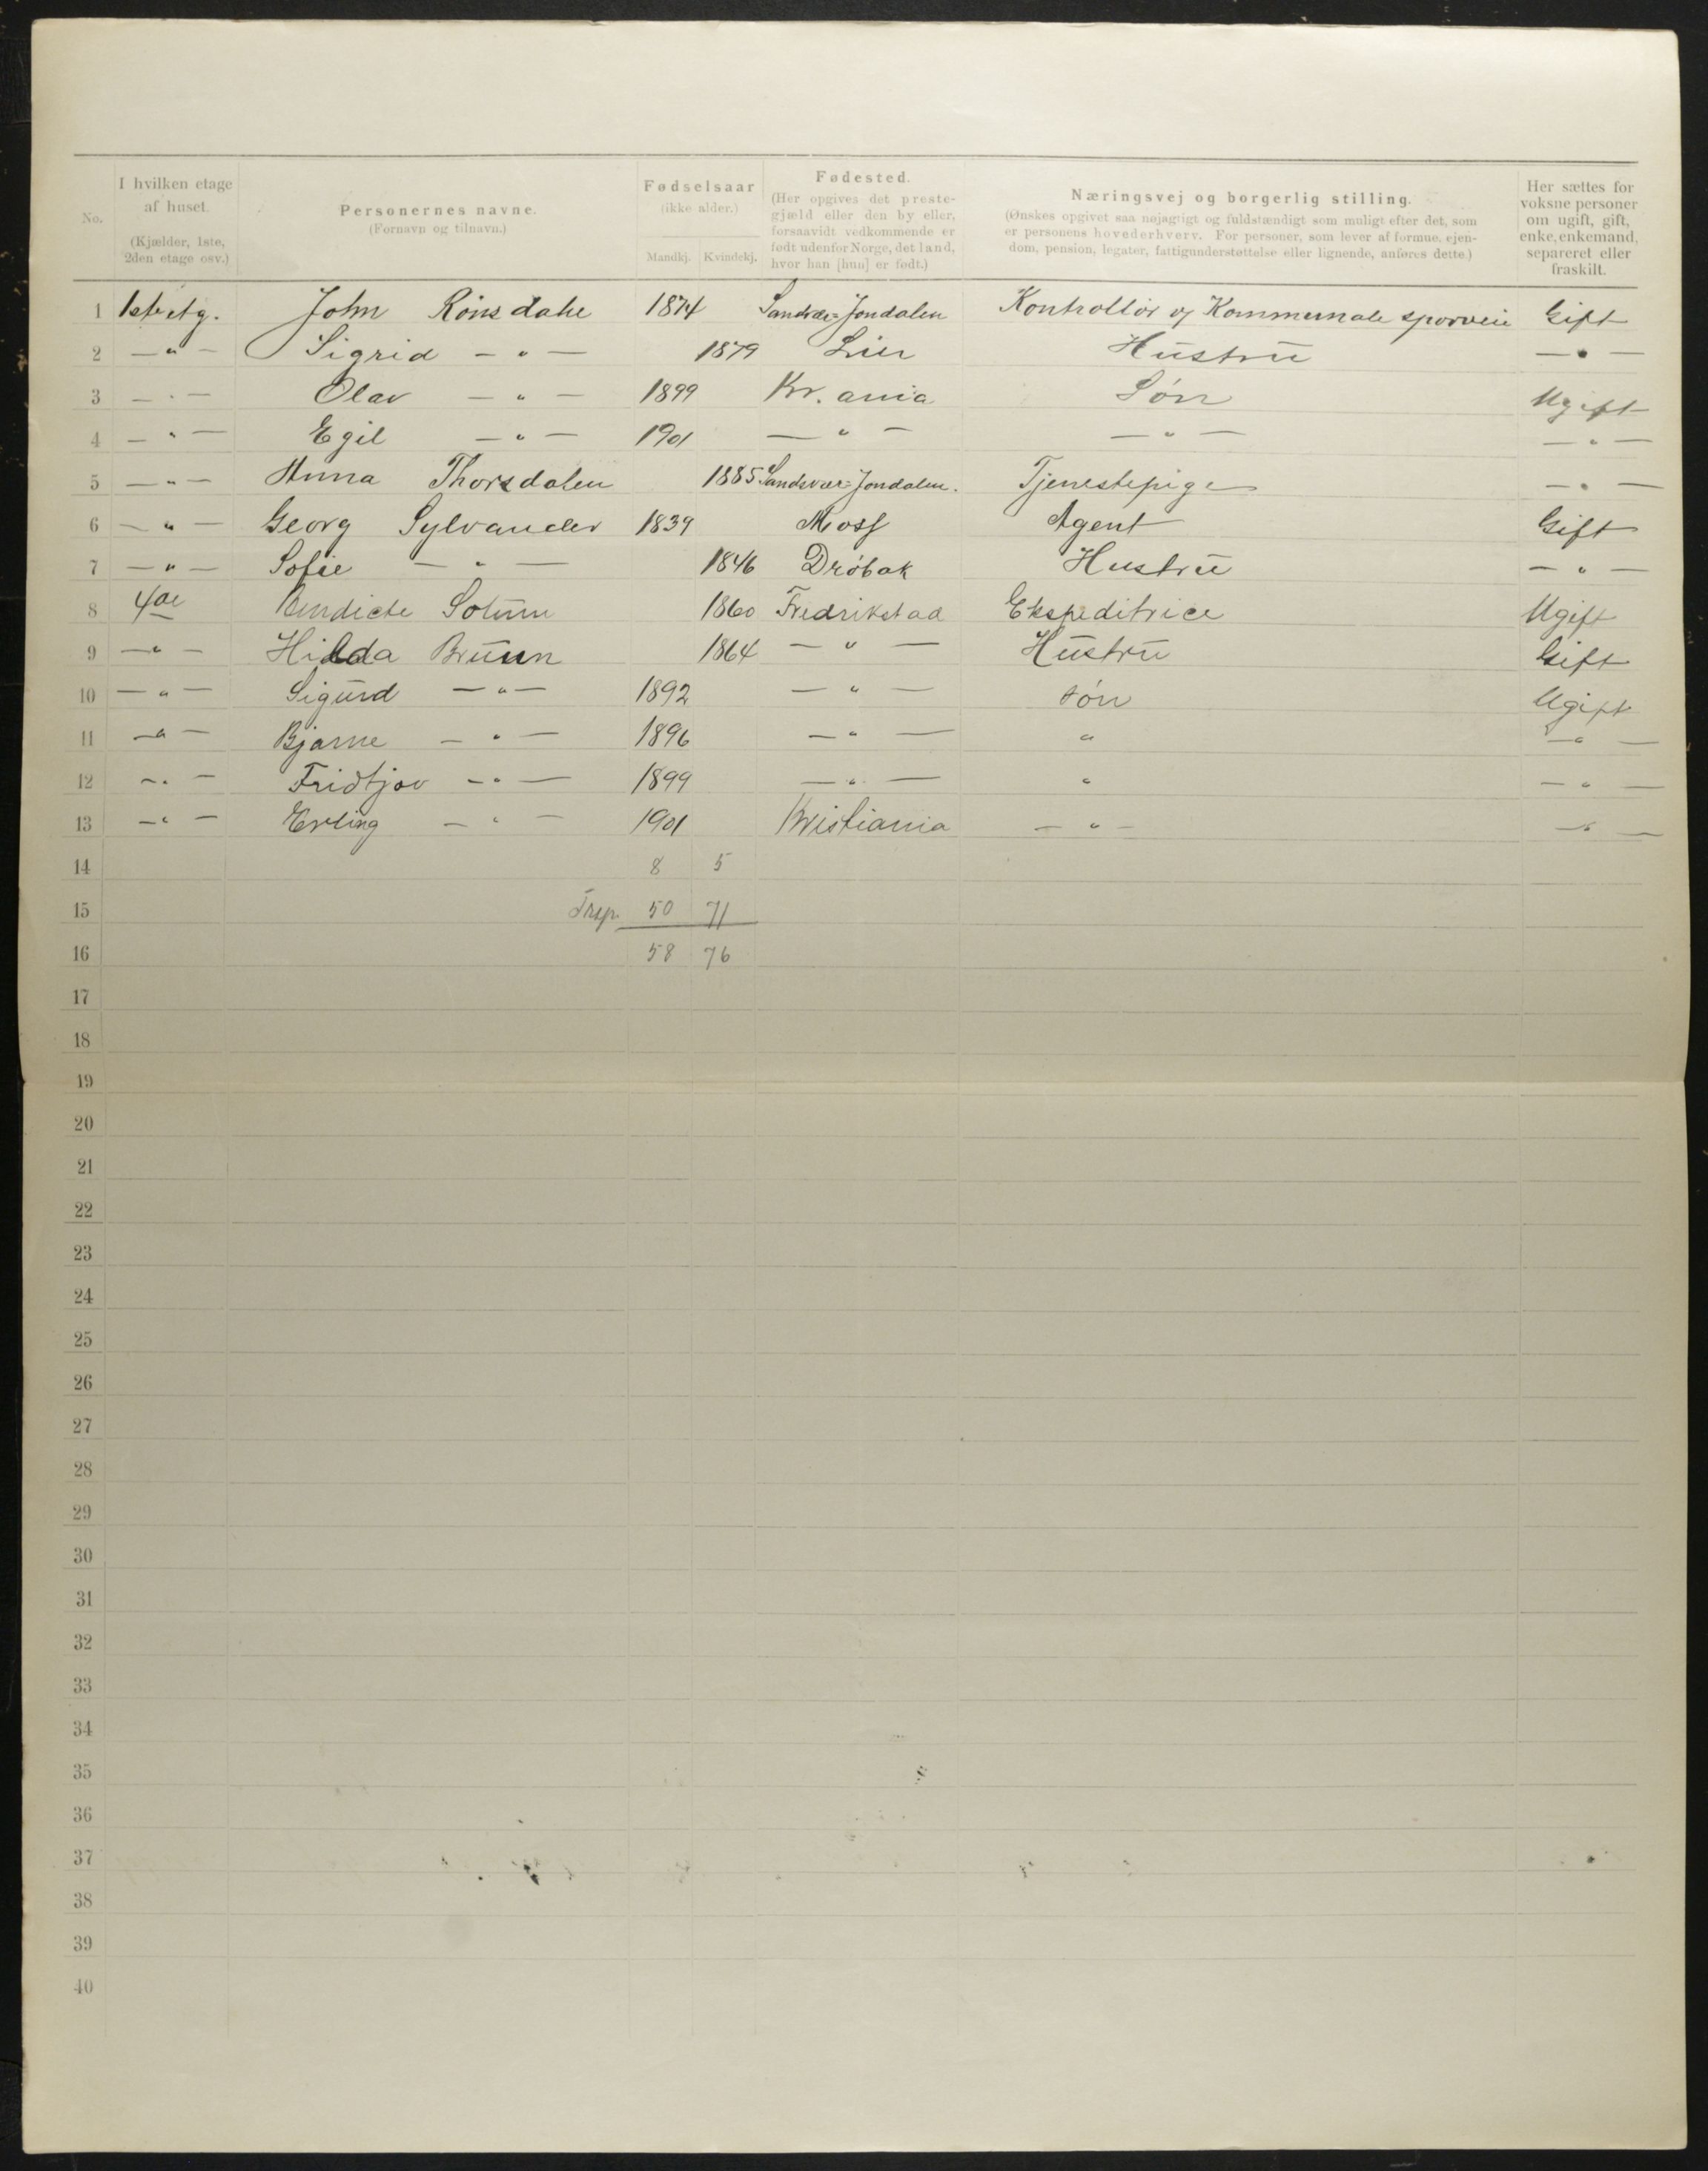 No. | I hvilken etage af huset. (Kjælder, 1ste, 2den etage osv.) | Personernes navne. (Fornavn og tilnavn.) | Fødselsaar (ikke alder.) Mandkj. Kvindekj. | Fødested. (Her opgives det prestegjæld eller den by eller, forsaavidt vedkommende er født udenfor Norge, det land, hvor han [hun] er født.) | Næringsvej og borgerlig stilling. (Ønskes opgivet saa nøjagtigt og fuldstændigt som muligt efter det, som er personens hovederhverv. For personer, som lever af formue, ejendom, pension, legater, fattigunderstøttelse eller lignende, anføres dette.) | Her sættes for voksne personer om ugift, gift, enke, enkemand, separeret eller fraskilt.
1 1ste etg. John Rønsdahe 1874 Sandsvær=Jondalen Kontrollør v/ Kommunale sporveie Gift
2 — " — Sigrid — " — 1879 Lier Hustru — " —
3 — " — Olav — " — 1899 Kr.ania Søn Ugift
4 — " — Egil — " — 1901 — " — — " — — " —
5 — " — Anna Thorsdalen 1885 Sandsvær=Jondalen. Tjenestepige — " —
6 — " — Georg Sylvander 1839 Moss Agent Gift
7 — " — Sofie — " — 1846 Drøbak Hustru — " —
8 4de Bendicte Solum 1860 Fredrikstad Ekspeditrice Ugift
9 — " — Hilda Bruun 1864 — " — Hustru Gift
10 — " — Sigurd — " — 1892 — " — søn Ugift
11 — " — Bjarne — " — 1896 — " — " — " —
12 — " — Fridtjov — " — 1899 — " — " — " —
13 — " — Erling — " — 1901 Kristiania — " — — " —
14 8 5
15 Trsp. 50 71
16 58 76
17
18
19
20
21
22
23
24
25
26
27
28
29
30
31
32
33
34
35
36
37
38
39
40